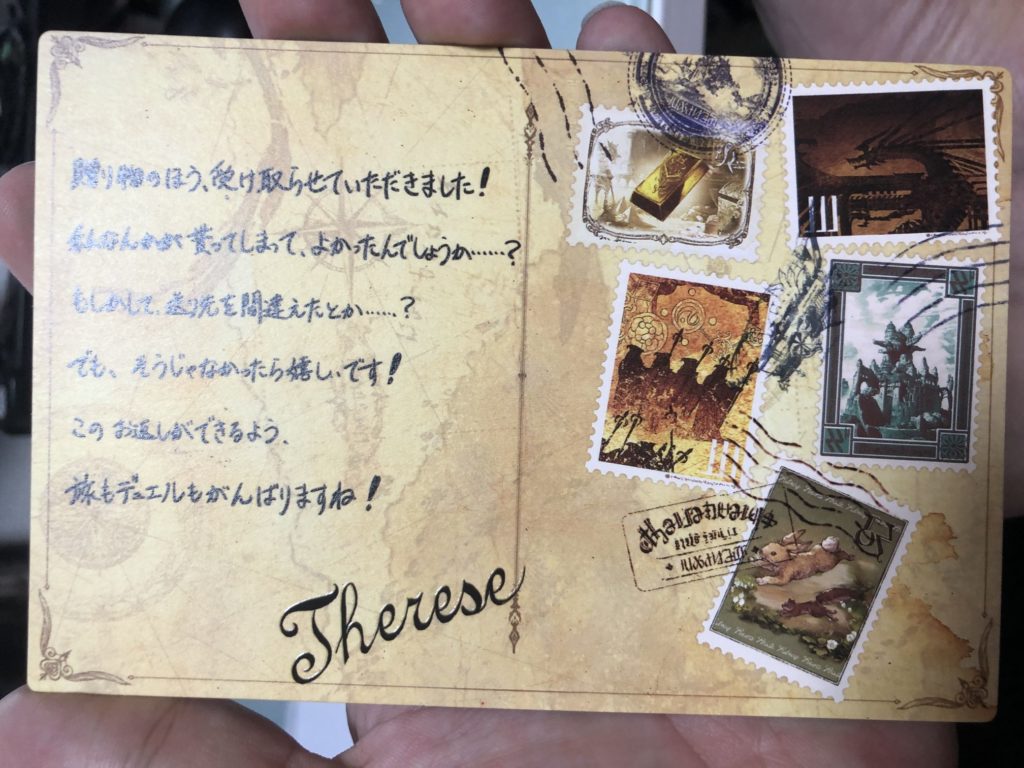 贈り物のほう、受け取らせていただきました!
なんかが貰ってしまって、よかったんでしょうか……?
もしかして、送り先を間違えたとか……?
でも、そうじゃなかったら嬉しいです!
このお返しができるよう、
旅もデュエルもがんばりますね!
Therese